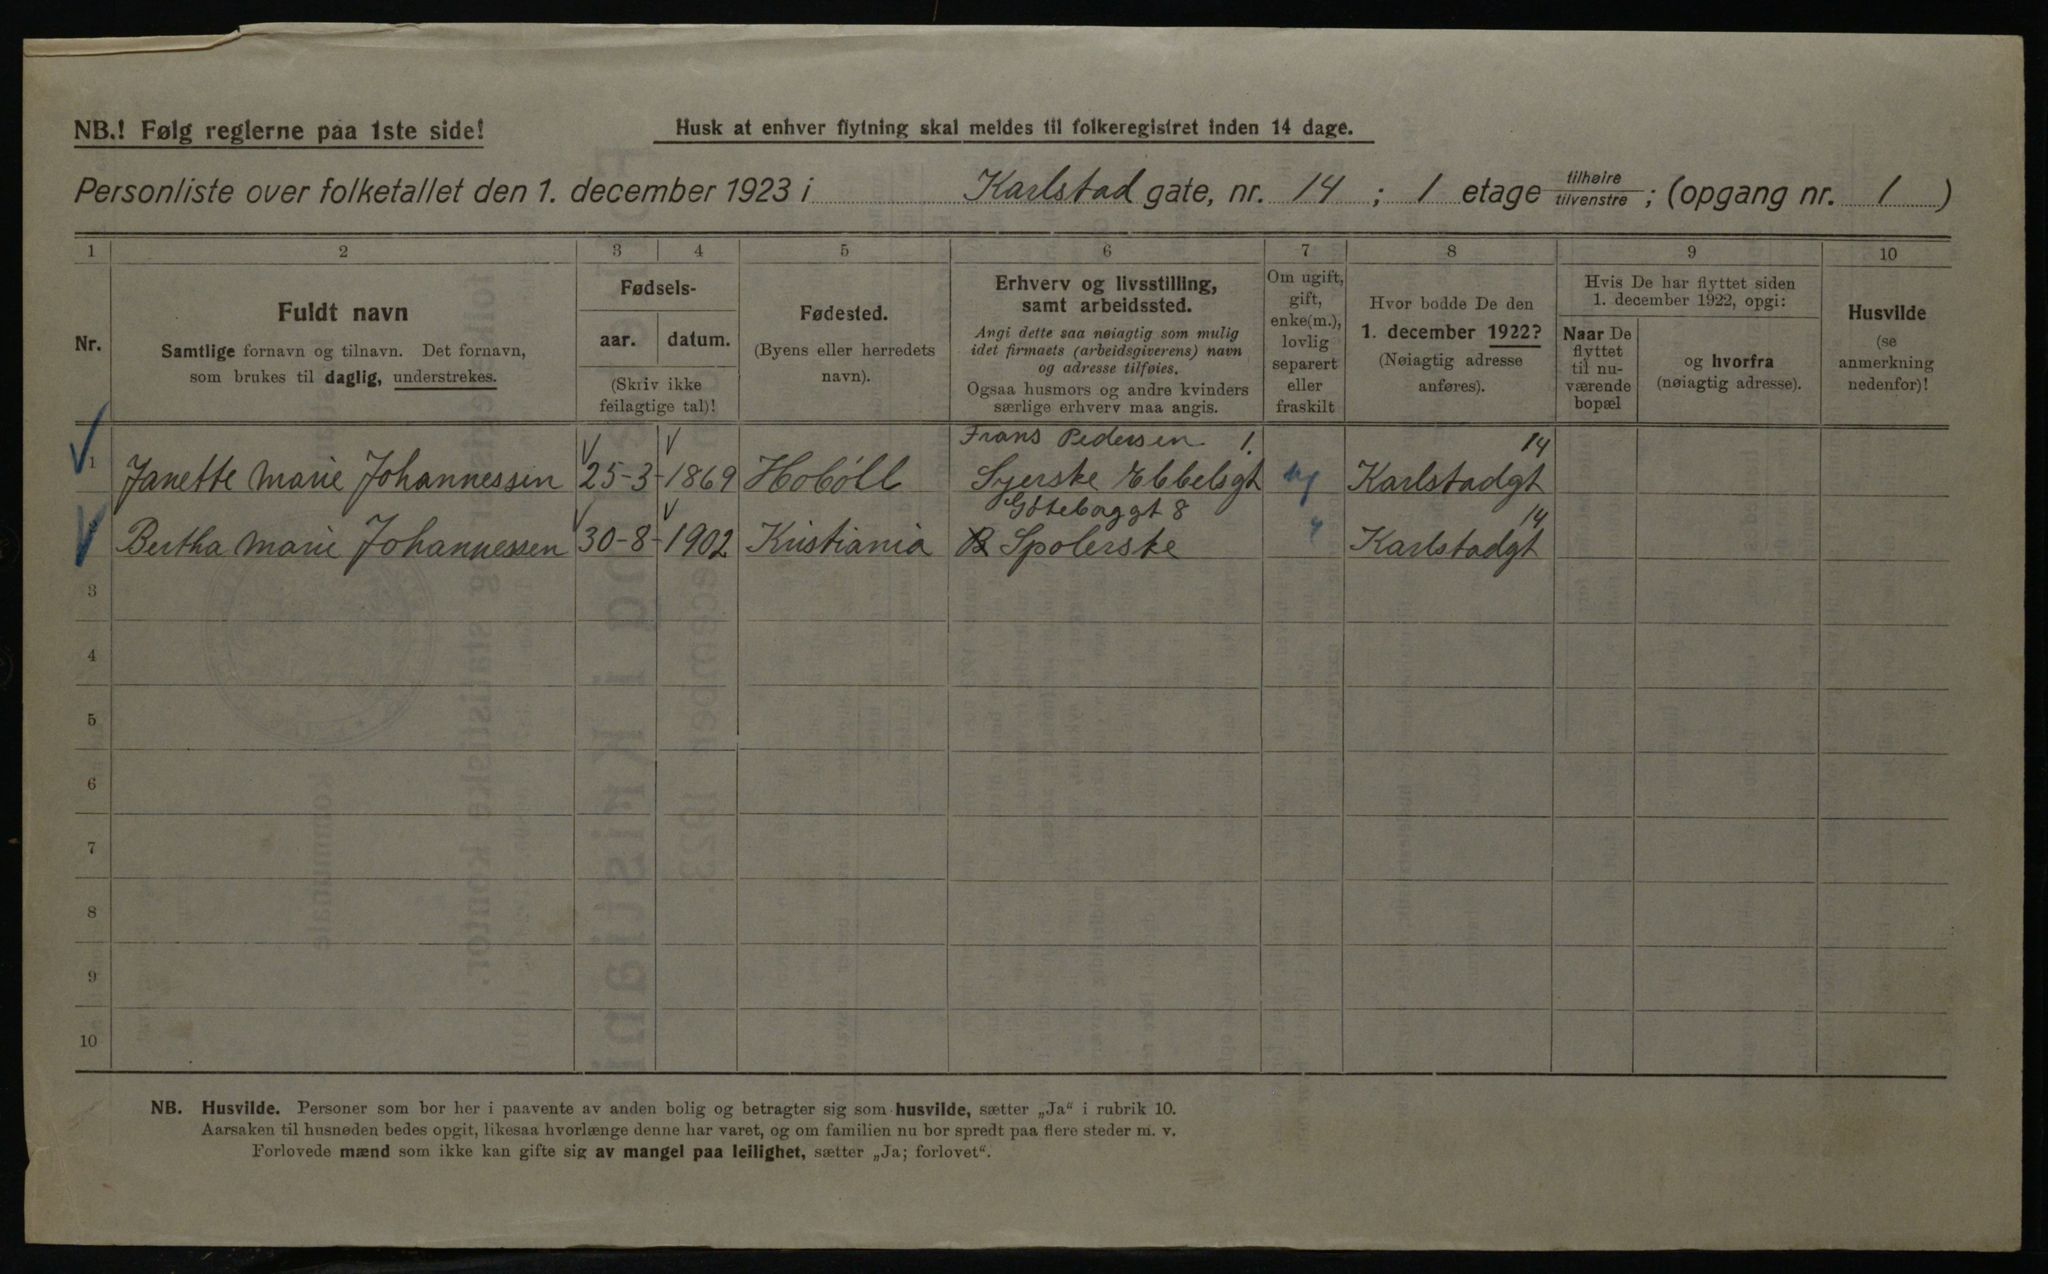 NB.! Følg reglerne paa 1ste side!
Husk at enhver flytning skal meldes til folkeregistret inden 14 dage.
Personliste over folketallet den 1. december 1923 i Karlstad gate, nr. 14 ; 1 etage tilhøire tilvenstre ; (opgang nr. 1 )
1 2 3 4 5 6 7 8 9 10
Nr.
Fuldt navn
Samtlige fornavn og tilnavn. Det fornavn,
som brukes til daglig, understrekes.
Fødsels-
aar. datum.
(Skriv ikke
feilagtige tal)!
Fødested.
(Byens eller herredets
navn).
Erhverv og livsstilling,
samt arbeidssted.
Angi dette saa nøiagtig som mulig
idet firmaets (arbeidsgiverens) navn
og adresse tilføies.
Ogsaa husmors og andre kvinders
særlige erhverv maa angis.
Om ugift,
gift,
enke(m.),
lovlig
separert
eller
fraskilt
Hvor bodde De den
1. december 1922?
(Nøiagtig adresse
anføres).
Hvis De har flyttet siden
1. december 1922, opgi:
Naar De
flyttet
til nu-
værende
bopæl
og hvorfra
(nøiagtig adresse).
Husvilde
(se
anmerkning
nedenfor)!
Frans Pedersen 1. 14
1 Janette Marie Johannessen 25-3-1869 Hobøll Syerske Ebbelsgt ug Karlstadgt
Gøteboggt 8 14
Bertha Marie Johannessen 30-8-1902 Kristiania Spolerske " Karlstadgt
3
4
5
6
7
8
9
10
NB. Husvilde. Personer som bor her i paavente av anden bolig og betragter sig som husvilde, sætter „Ja“ i rubrik 10.
Aarsaken til husnøden bedes opgit, likesaa hvorlænge denne har varet, og om familien nu bor spredt paa flere steder m. v.
Forlovede mænd som ikke kan gifte sig av mangel paa leilighet, sætter „Ja; forlovet“.